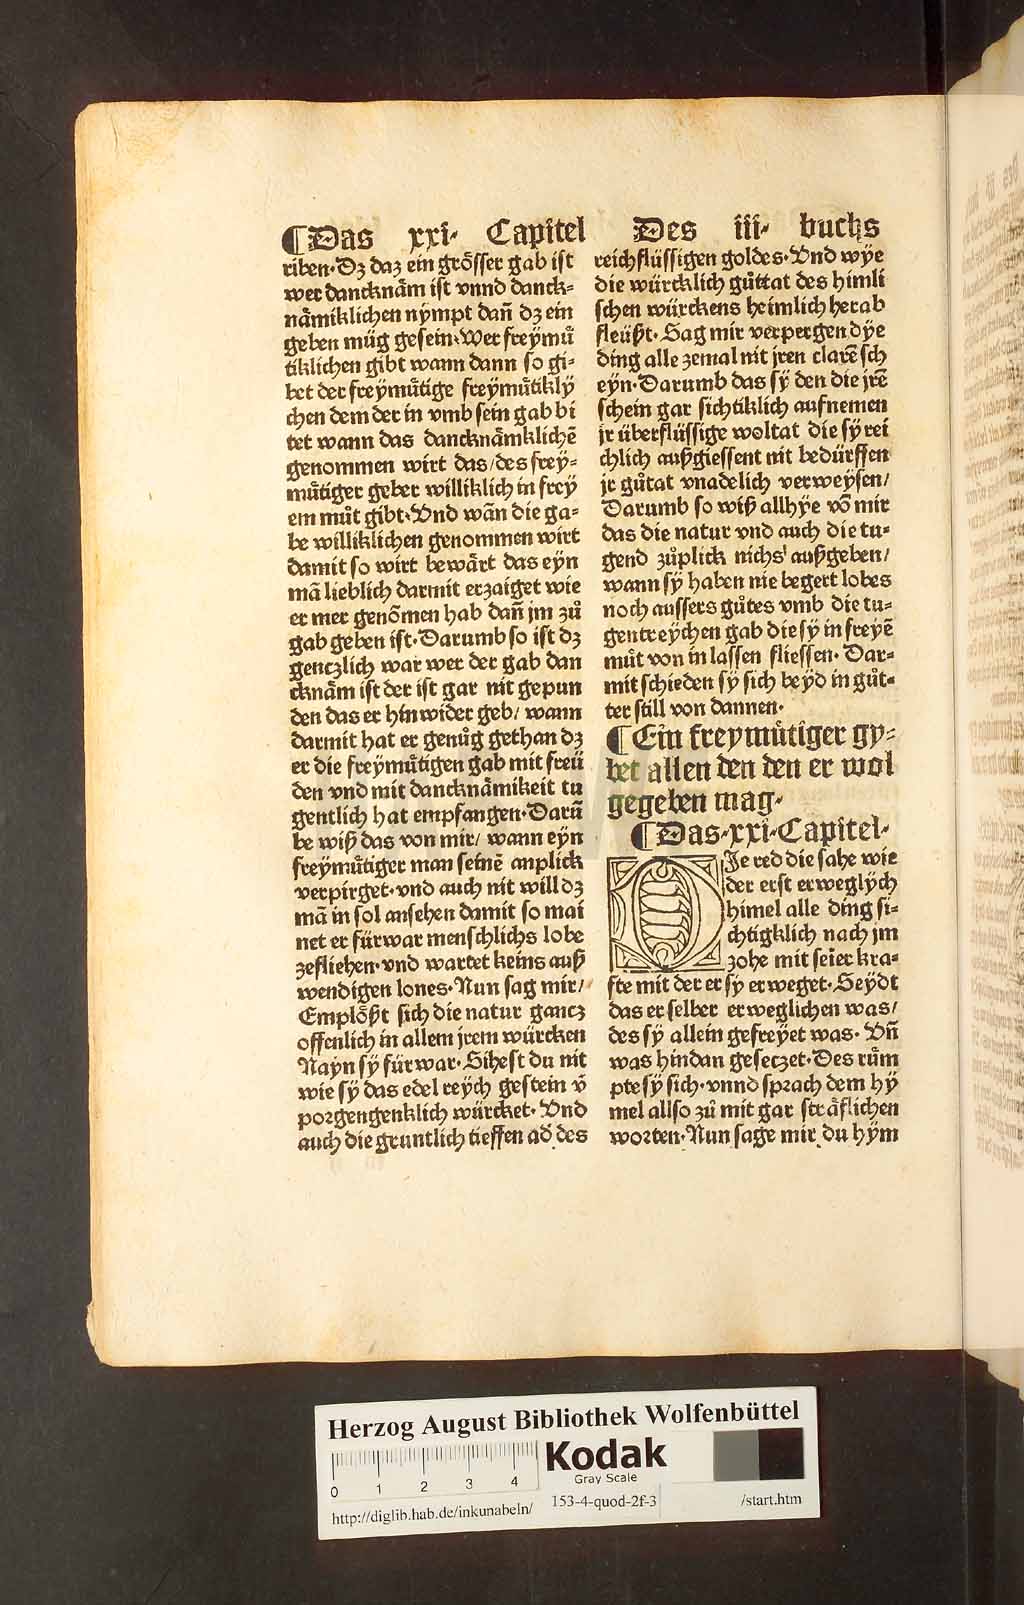 ¶Das xxi· Capitel Des iii· buchs
riben·Dʒ daʒ ein groͤsser gab ist
wer dancknaͤm ist vnnd danck⸗
naͤmiklichen nympt dañ dʒ ein
geben muͤg gesein·Wer freÿmuͤ
tiklichen gibt wann dann so gi⸗
bet der freÿmuͤtige freÿmuͤtiklÿ
chen dem der in vmb sein gab bi
tet wann das dancknaͤmklichē
genommen wirt das/des freÿ⸗
muͤtiger geber williklich in freÿ
em muͦt gibt·Vnd wān die ga⸗
be williklichen genommen wirt
damit so wirt bewaͤrt das eÿn
mā lieblich darmit erzaiget wie
er mer genōmen hab dañ jm zuͦ
gab geben ist·Darumb so ist dʒ
genczlich war wer der gab dan
cknaͤm ist der ist gar nit gepun
den das er hinwider geb/ wann
darmit hat er genuͦg gethan dʒ
er die freÿmuͤtigen gab mit freü
den vnd mit dancknaͤmikeit tu
gentlich hat empfangen·Darū
be wiß das von mir/ wann eÿn
freÿmuͤtiger man seinē anplick
verpirget·vnd auch nit will dʒ
mā in sol ansehen damit so mai
net er fürwar menschlichs lobe
zefliehen·vnd wartet keins auß
wendigen lones·Nun sag mir/
Emploͤßt sich die natur gancz
offenlich in allem jrem würcken
Naÿn sÿ fürwar·Sihest du nit
wie sÿ das edel reÿch gestein v̄
porgengenklich würcket·Vnd
auch die gruntlich tieffen ad̓ des
reichflüssigen goldes·Vnd wÿe
die würcklich guͦttat des himli
schen würckens heimlich herab
fleüßt·Sag mir verpergen dÿe
ding alle zemal nit jren clarē sch
eÿn·Darumb das sÿ den die jrē
schein gar sichtiklich aufnemen
jr überflüssige woltat die sÿ rei
chlich außgiessent nit bedürffen
jr guͦtat vnadelich verweÿsen/
Darumb so wiß allhÿe vō mir
das die natur vnd auch die tu⸗
gend zuͦplick nichs außgeben/
wann sÿ haben nie begert lobes
noch aussers guͦtes vmb die tu⸗
gentreÿchen gab die sÿ in freÿē
muͦt von in lassen fliessen· Dar⸗
mit schieden sÿ sich beÿd in guͦt⸗
ter still von dannen·
¶Ein freymuͤtiger gy⸗
bet allen den den er wol
gegeben mag·
¶Das·xxi·Capitel·
DJe red die sahe wie
der erst erweglÿch
himel alle ding si⸗
chtigklich nach jm
zohe mit seīer kra⸗
fte mit der er sÿ erweget·Seÿdt
das er selber erweglichen was/
des sÿ allein gefreÿet was· Vñ
was hindan geseczet·Des ruͤm
pte sÿ sich·vnnd sprach dem hÿ
mel allso zuͦ mit gar straͤflichen
worten·Nun sage mir du hÿm
Herzog August Bibliothek Wolfenbüttel
Kodak
Gray Scale
0 1 2 3 4
http://diglib.hab.de/inkunabeln/ 153-4-quod-2f-3 /start.htm